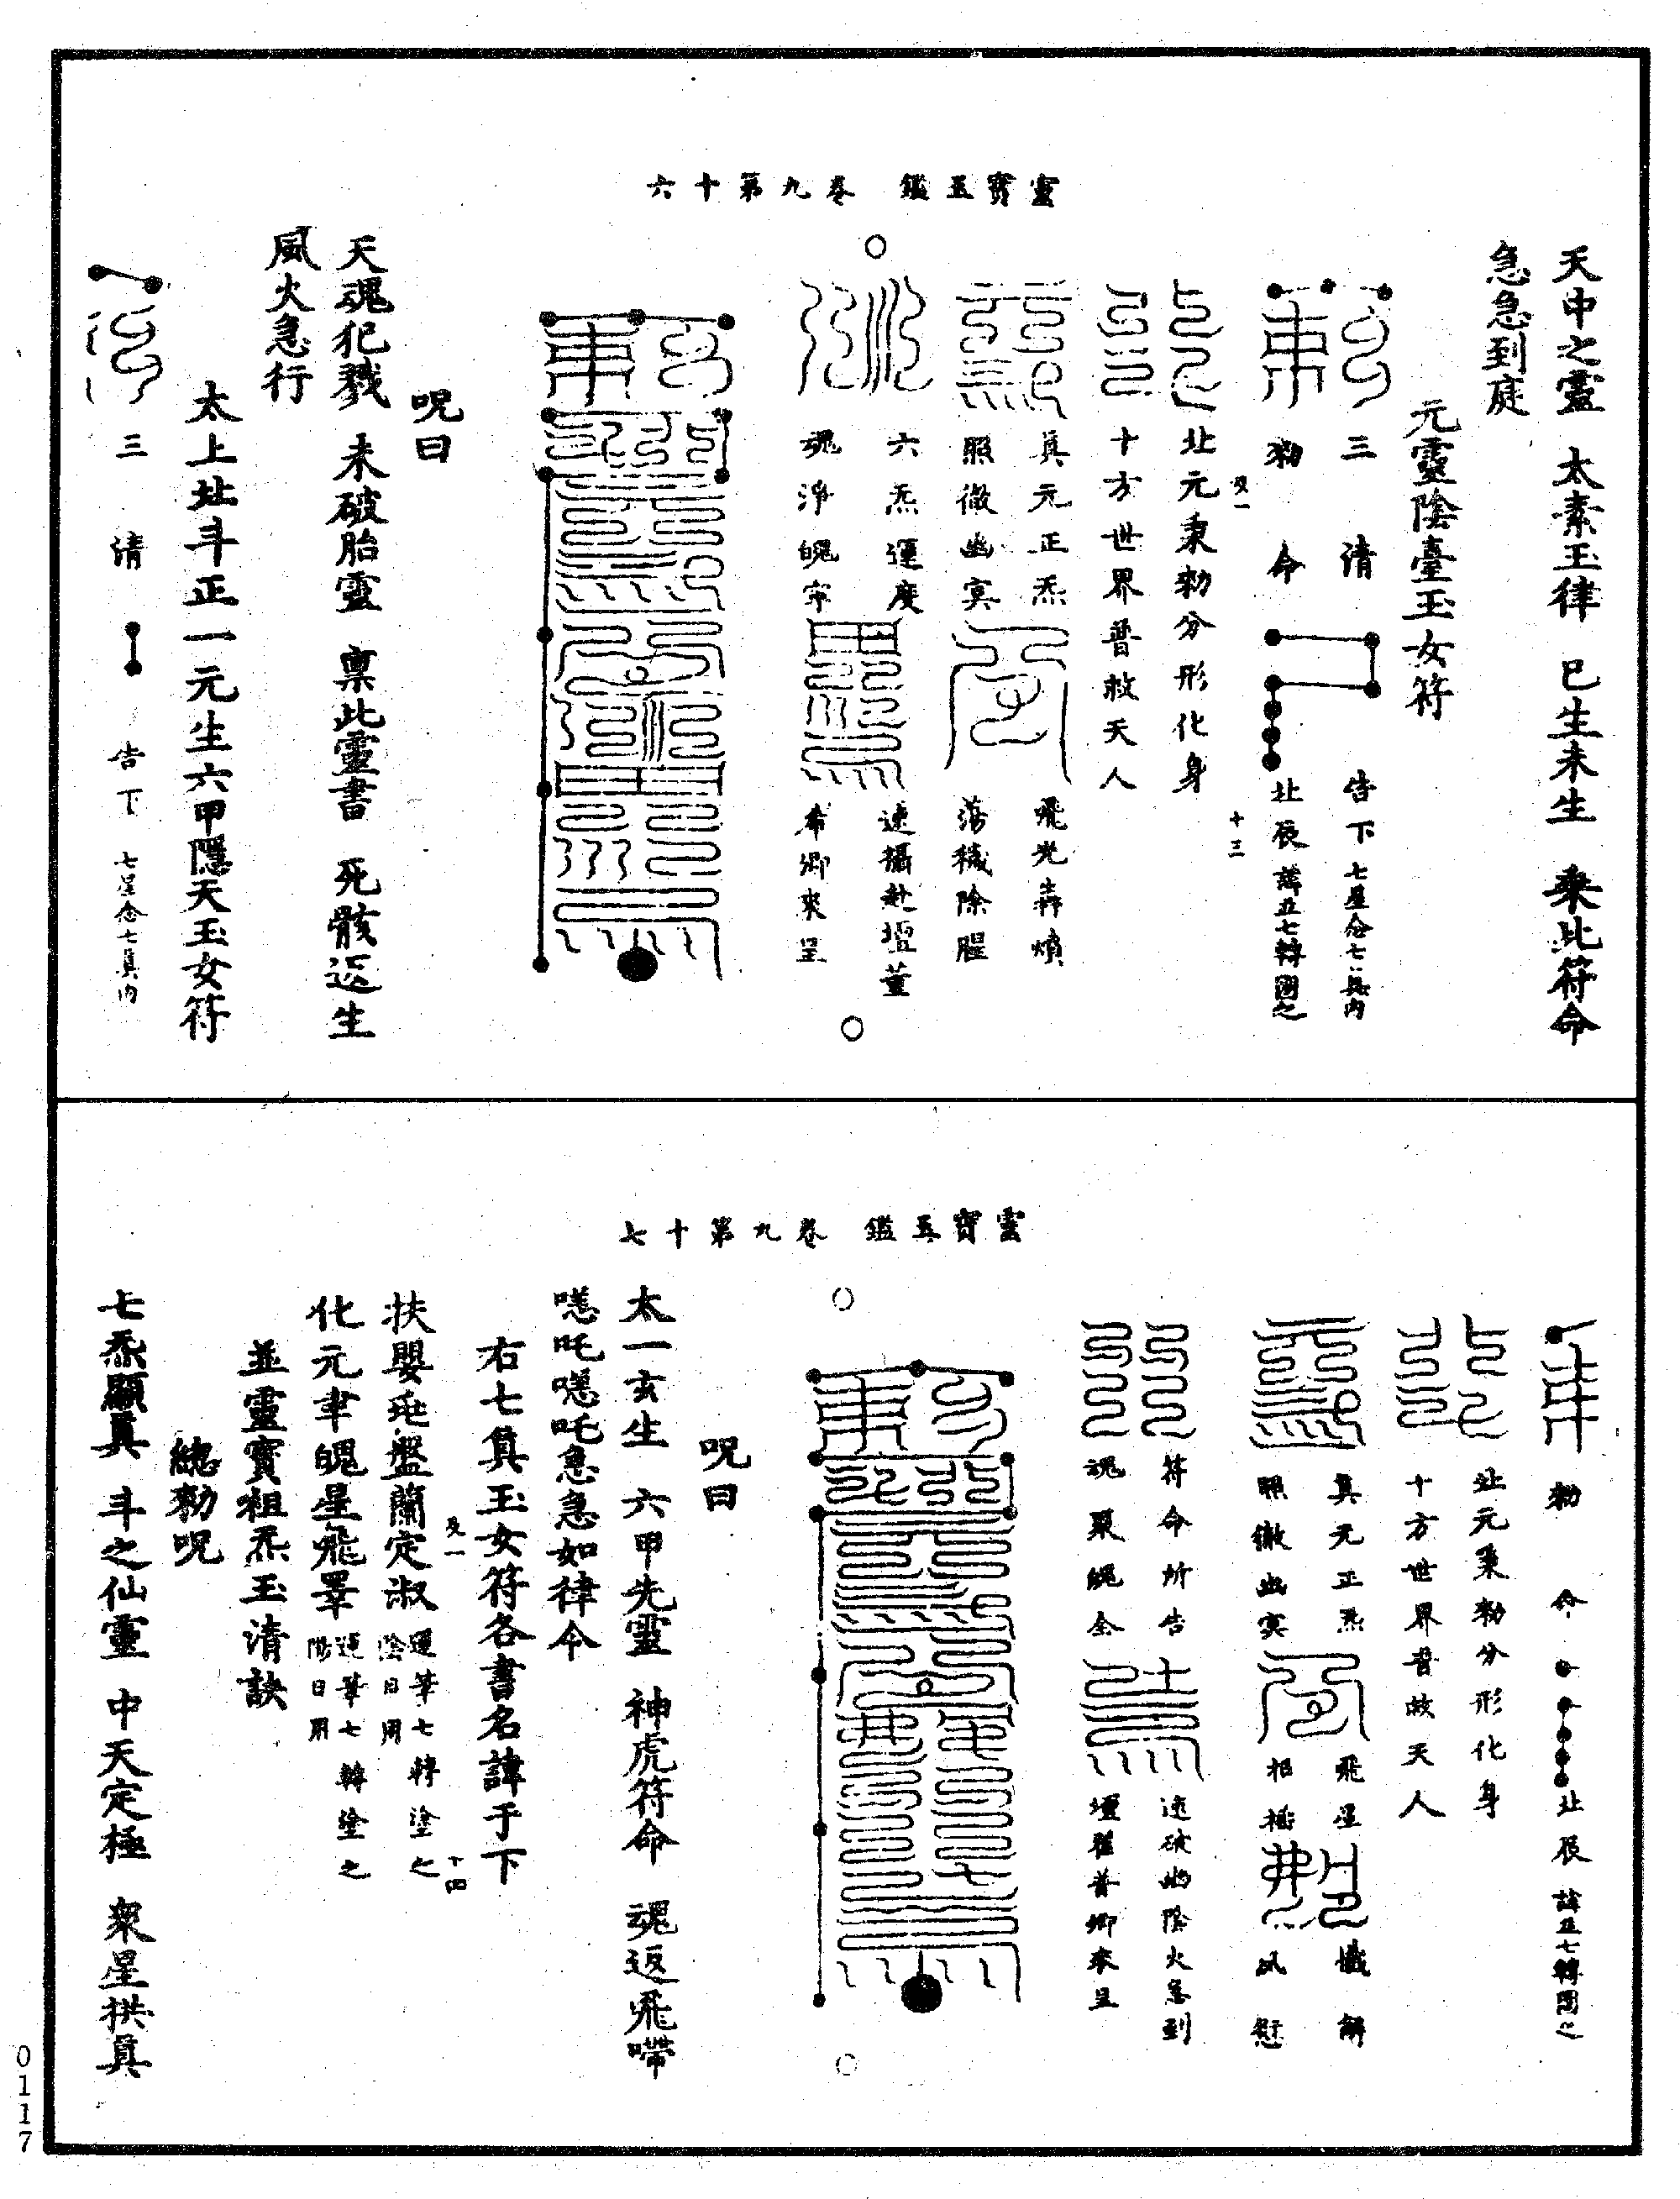 靈寶玉鑑　卷九第十六
天中之靈　太素玉律　已生未生　乘此符命
急急到庭
元靈陰臺玉女符
三清　告下　七星念七真內
勑命　北辰　諱五七轉圈之
及一　十三
北元秉勑分形化身
十方世界普救天人
真元正炁　飛光犇熿
照徹幽冥　蕩穢除腥
六炁運度　速攝赴壇葷
魂淨魄寧　希卿來呈
呪曰
天魂犯戮　未破胎靈　稟此靈書　死骸返生
風火急行
太上北斗正一元生六甲隱天玉女符
三清　告下　七星念七真內
靈寶玉鑑　卷九第十七
勑命　北辰　諱五七轉圈之
北元秉勑分形化身
十方世界普救天人
真元正炁　飛星　懺解
照徹幽冥　招搖
符命所告　速破幽陰火急到
魂　魄全　壇　普卿來呈
呪曰
太一玄生　六甲先靈　神虎符命　魂返飛
吒吒急急如律令
右七真玉女符各書名諱于下
及一　十四
扶嬰 盤蘭定淑　運筆七轉塗之　陰日用
化元 魄星飛 　運筆七轉塗之　陽日用
並靈寶祖炁玉清訣
總勑呪
七炁顯真　斗之仙靈　中天定極　衆星拱真
0117